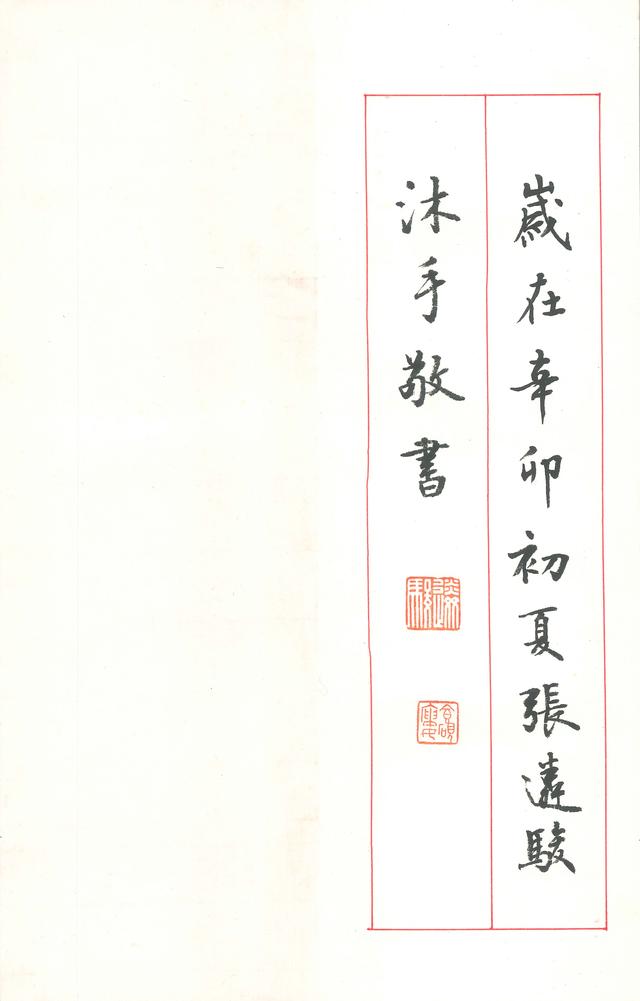 歲在辛卯初夏張遴駿
沐手敬書